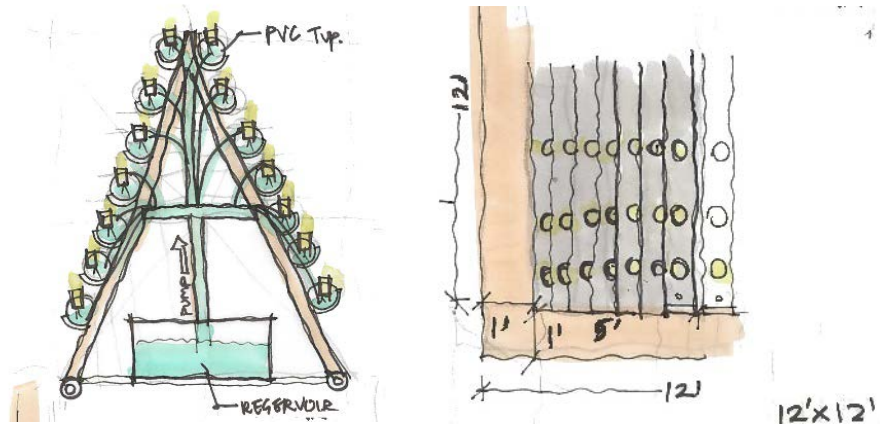 PVC Typ.
PUMP
RESERVOIR
12'
1'
1'
5'
12'
12'x12'